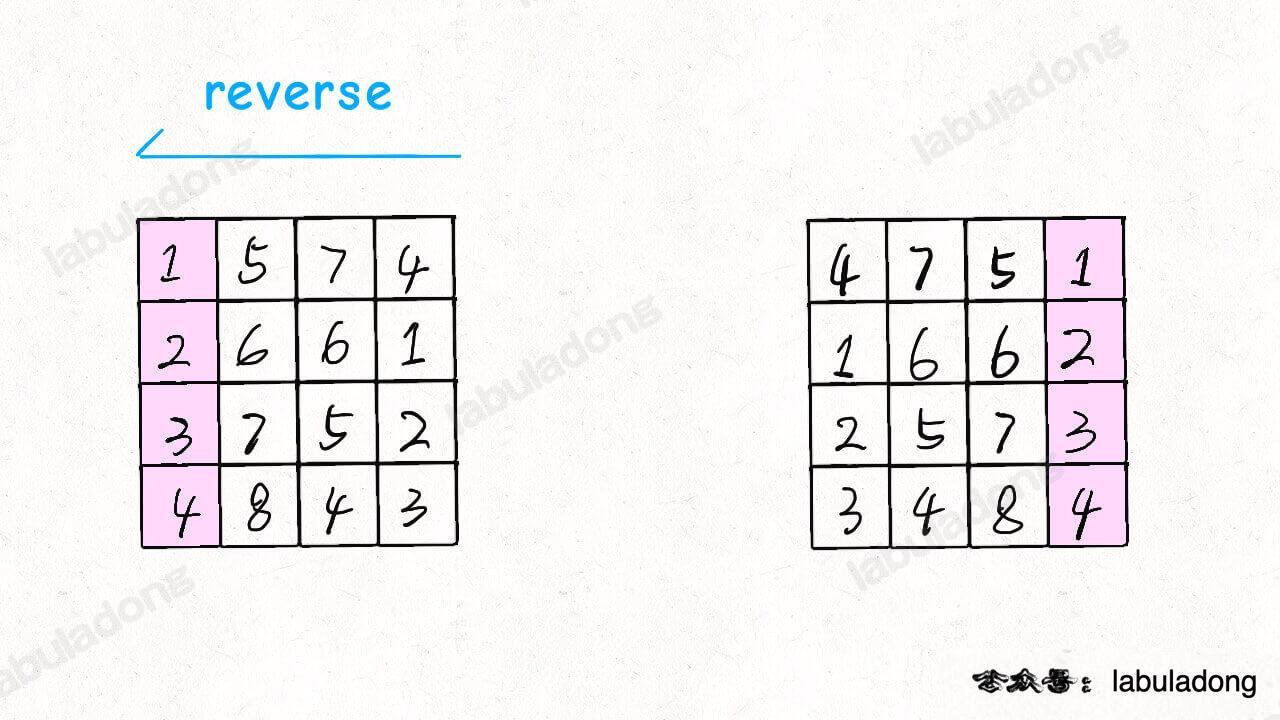 reverse
1 5 7 4
2 6 6 1
3 7 5 2
4 8 4 3
4 7 5 1
1 6 6 2
2 5 7 3
3 4 8 4
labuladong
labuladong
labuladong
labuladong
labuladong
公众号：labuladong